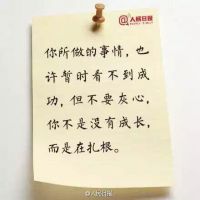 @人民日报
你所做的事情，也
许暂时看不到成
功，但不要灰心，
你不是没有成长，
而是在扎根。
@人民日报